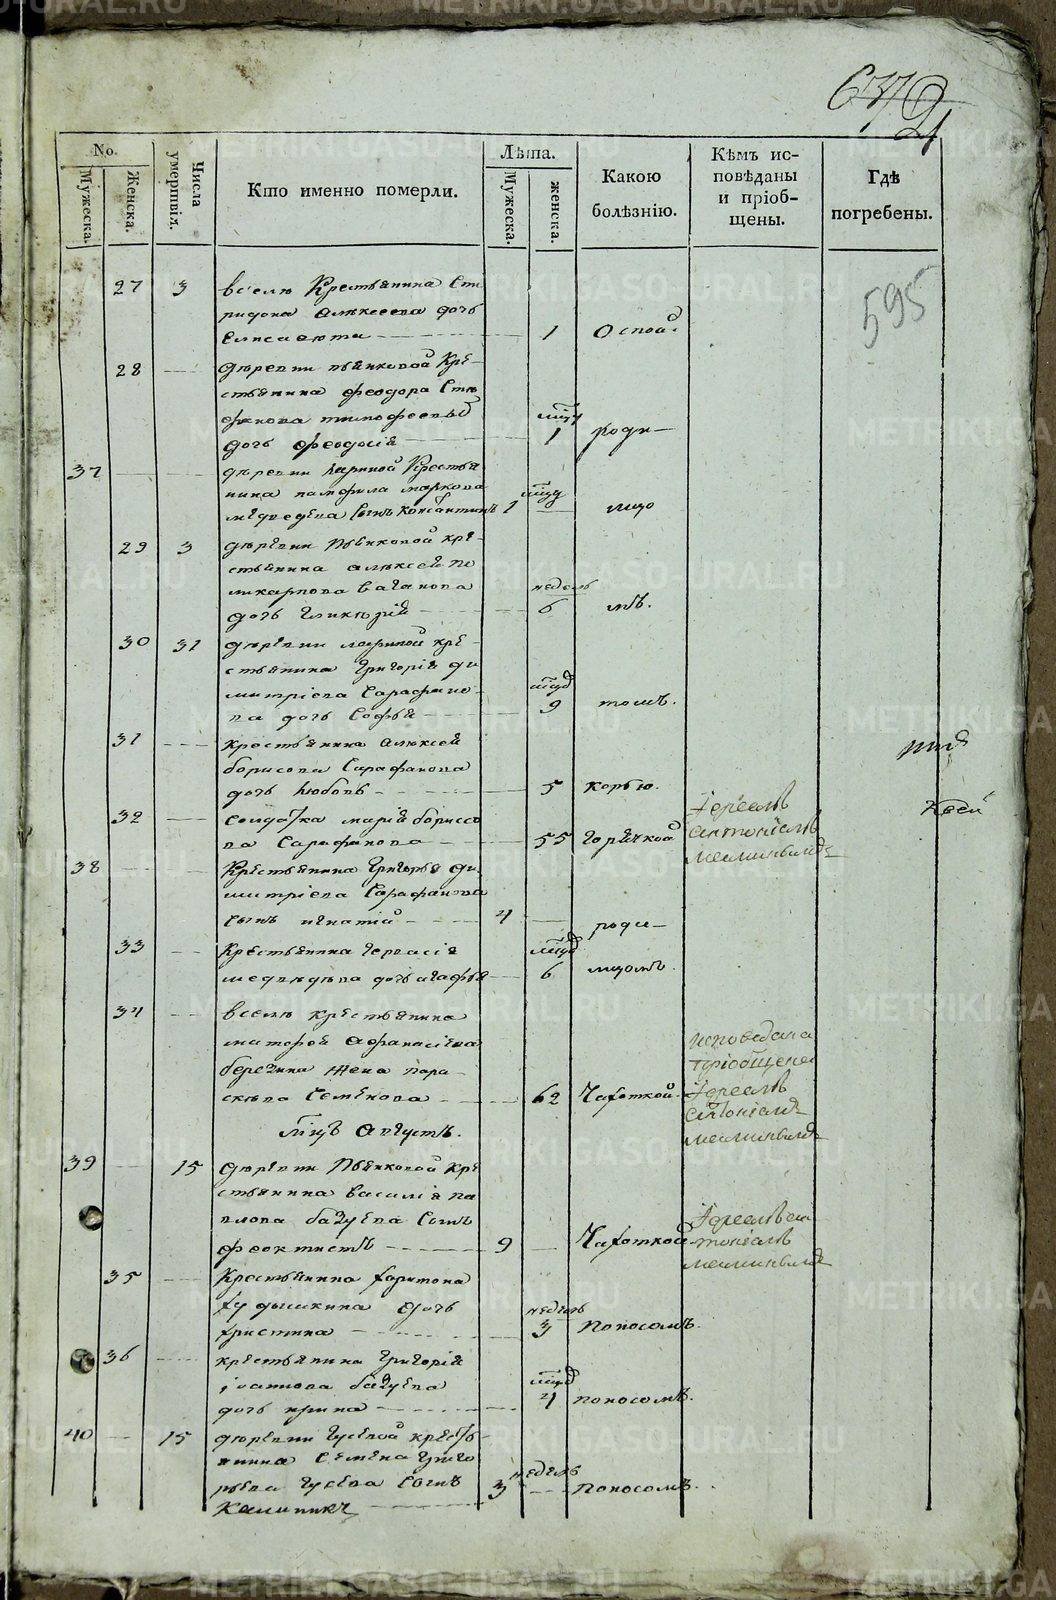 672
No.
Мужеска.
Женска.
Числа умертвія.
Кто именно померли.
Лѣта.
Мужеска.
женска.
Какою
болѣзнію.
Кѣмъ ис-
повѣданы
и пріоб-
щены.
Гдѣ
погребены.
595
27 3 вселе Крестьянина Спи
ридона Алексеева дочь
Елисавета 1 Оспой
28 деревни пьянковой Кре-
стьянина феодора Сте
фанова тимофеевы
дочь феодосия мцъ 1 роди-
37 деревни Крестья
нина памфила маркова
медведева Сынъ константинъ 1 мцо
29 3 деревни Пьянковой кре-
стьянина алексея по
ликарпова Ваганова недель
дочь гликерия 6 мъ.
30 31 деревни кре-
стьянина Григория ди
митриева Сарафано-
ва дочь Софья 9 томъ.
31 крестьянина алексея
борисова Сарафанова
дочь любовь 5 корью.
32 Солдатка мария борисо
ва Сарафанова 55 горячкой Іереемъ
антоніемъ
38 Крестьянина Григорья ди
митриева Сарафанова
Сынъ игнатий 4 роди-
33 Крестьянина гервасия
медведева дочь агафья 6 мцомъ.
34 вселе крестьянина
Афанасиева
березина жена пара-
скева Семенова 62 Чахоткой. исповедана
пріобщена
Іереемъ
антоніемъ
мцъ Августъ.
39 15 деревни Пьянковой кре
стьянина василия па
влова базуева Сынъ
феоктистъ 9 Чахоткой Іереемъ ан
тоніемъ
35 Крестьянина харитона
худышкина дочь недель
христина 3 Поносомъ.
36 крестьянина григория
базуева
дочь ирина 4 поносомъ.
40 15 деревни гусевой кресть
янина Семена григо
рьева гусева Сынъ недель
Калинникъ 3 поносомъ.
METRIKI.GASO-URAL.RU